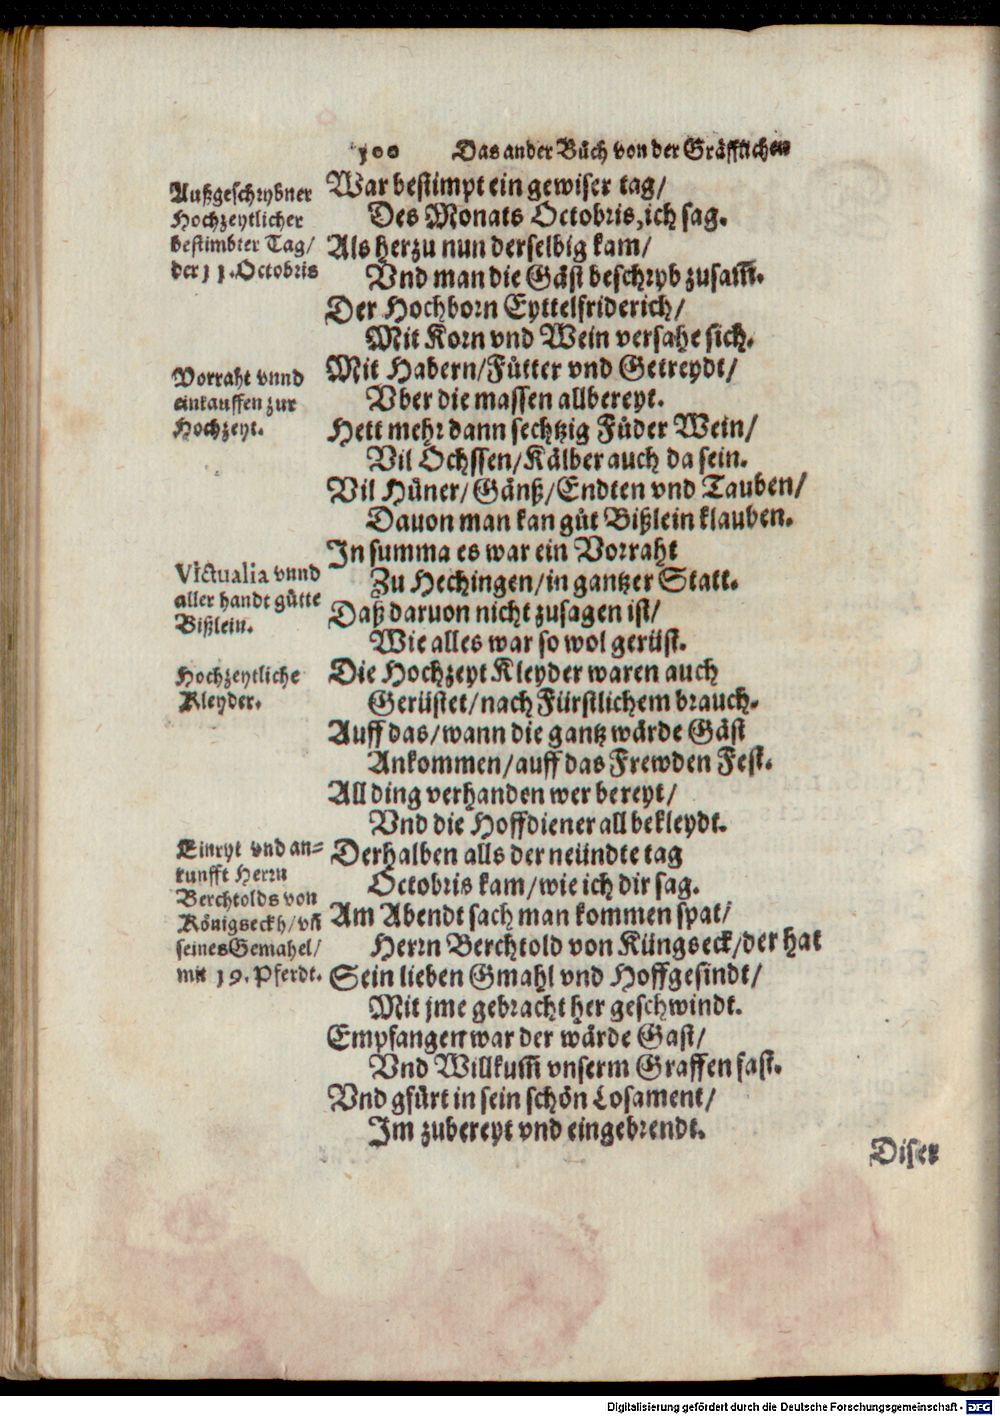 100 Das ander Bůch von der Gräfflichen
Außgeschrybner
Hochzeytlicher
bestimbter Tag/
der 11. Octobris
War bestimpt ein gewiser tag/
Des Monats Octobris, ich sag.
Als herzu nun derselbig kam/
Vnd man die Gäst beschryb zusam̃.
Der Hochborn Eyttelfriderich/
Mit Korn vnd Wein versahe sich.
Vorraht vnnd
einkauffen zur
Hochzeyt.
Mit Habern/Fůtter vnd Getreydt/
Vber die massen allbereyt.
Hett mehr dann sechtzig Fůder Wein/
Vil Ochssen/Kälber auch da sein.
Vil Hüner/Gänß/Endten vnd Tauben/
Dauon man kan gůt Bißlein klauben.
In summa es war ein Vorraht
Victualia vnnd
aller handt gůtte
Bißlein.
Zu Hechingen/in gantzer Statt.
Daß daruon nicht zusagen ist/
Wie alles war so wol gerüst.
Hochzeytliche
Kleyder.
Die Hochzeyt Kleyder waren auch
Gerüstet/nach Fürstlichem brauch.
Auff das/wann die gantz wärde Gäst
Ankommen/auff das Frewden Fest.
All ding verhanden wer bereyt/
Vnd die Hoffdiener all bekleydt.
Einryt vnd an-
kunfft Herrn
Berchtolds von
Königseckh/vñ
seines Gemahel/
mit 19. Pferdt.
Derhalben alls der neündte tag
Octobris kam/wie ich dir sag.
Am Abendt sach man kommen spat/
Herrn Berchtold von Küngseck/der hat
Sein lieben Gmahl vnd Hoffgesindt/
Mit jme gebracht her geschwindt.
Empfangen war der wärde Gast/
Vnd Willkum̃ vnserm Graffen fast.
Vnd gfürt in sein schön Losament/
Im zubereyt vnd eingebrendt.
Diser
Digitalisierung gefördert durch die Deutsche Forschungsgemeinschaft - DFG